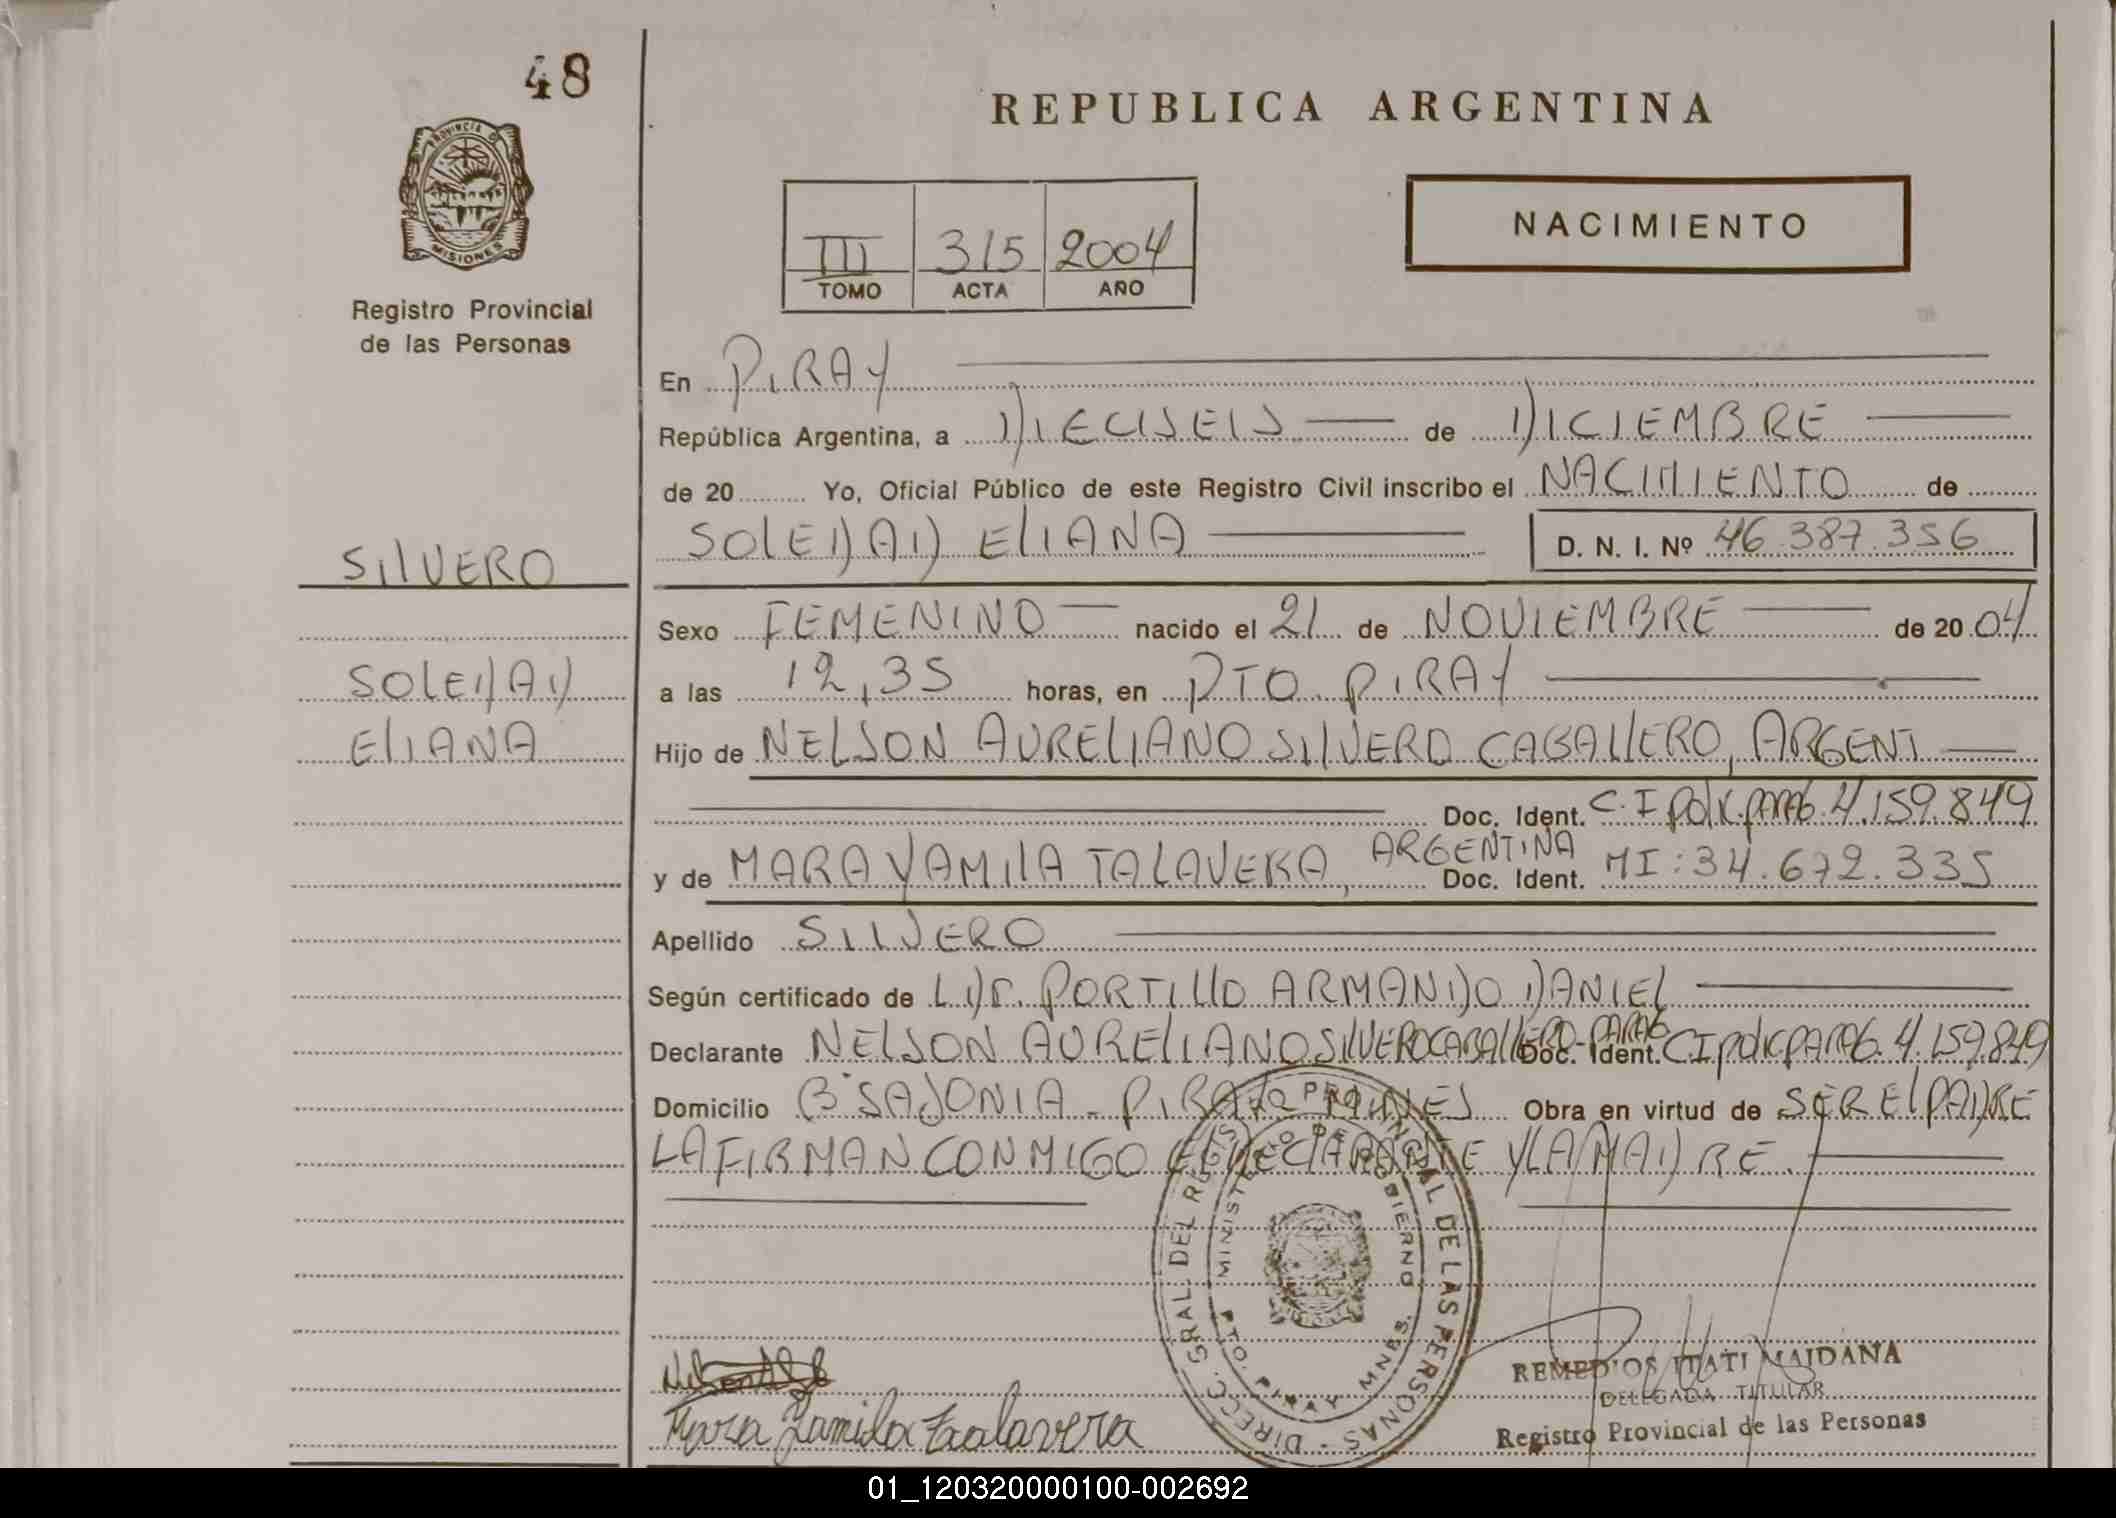 48
REPUBLICA ARGENTINA
PROVINCIA DE
MISIONES
Registro Provincial
de las Personas
III 315 2004
TOMO ACTA AÑO
NACIMIENTO
En PIRAY
República Argentina, a DIECISEIS de DICIEMBRE
de 20 Yo, Oficial Público de este Registro Civil inscribo el NACIMIENTO de
SOLEDAD ELIANA D. N. I. Nº 46.387.356
SILVERO
SOLEDAD
ELIANA
Sexo FEMENINO nacido el 21 de NOVIEMBRE de 2004
a las 12,35 horas, en PTO. PIRAY
Hijo de NELSON AURELIANO SILVERO CABALLERO, ARGENT
Doc. Ident. C.I polic. parag. 4.159.849
y de MARA YAMILA TALAVERA, ARGENTINA Doc. Ident. MI: 34.672.335
Apellido SILVERO
Según certificado de PORTILLO ARMANDO DANIEL
Declarante NELSON AURELIANO SILVERO CABALLERO-PARAG Doc. Ident. CI polic PARAG. 4.159.849
Domicilio Bº SAJONIA - PIRAY MNES Obra en virtud de SER EL PADRE
LA FIRMAN CONMIGO EL DECLARANTE Y LA MADRE.
DIRECC. GRAL. DEL REGISTRO PROVINCIAL DE LAS PERSONAS
MINISTERIO DE GOBIERNO
PTO. PIRAY MNES.
Mara Yamila Talavera
REMEDIOS ITATI MAIDANA
DELEGADA TITULAR
Registro Provincial de las Personas
01_120320000100-002692